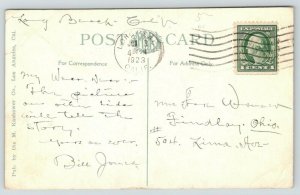 Long Beach Calif
POST CARD
For Correspondence
For Address Only
1923
U.S. POSTAGE
My
The picture
on other side
will tell the
story.
yours as ever,
Bill Jones
Findlay, Ohio.
504 Lima Ave
Pub. by Geo. M. Kashower Co., Los Angeles, Cal.